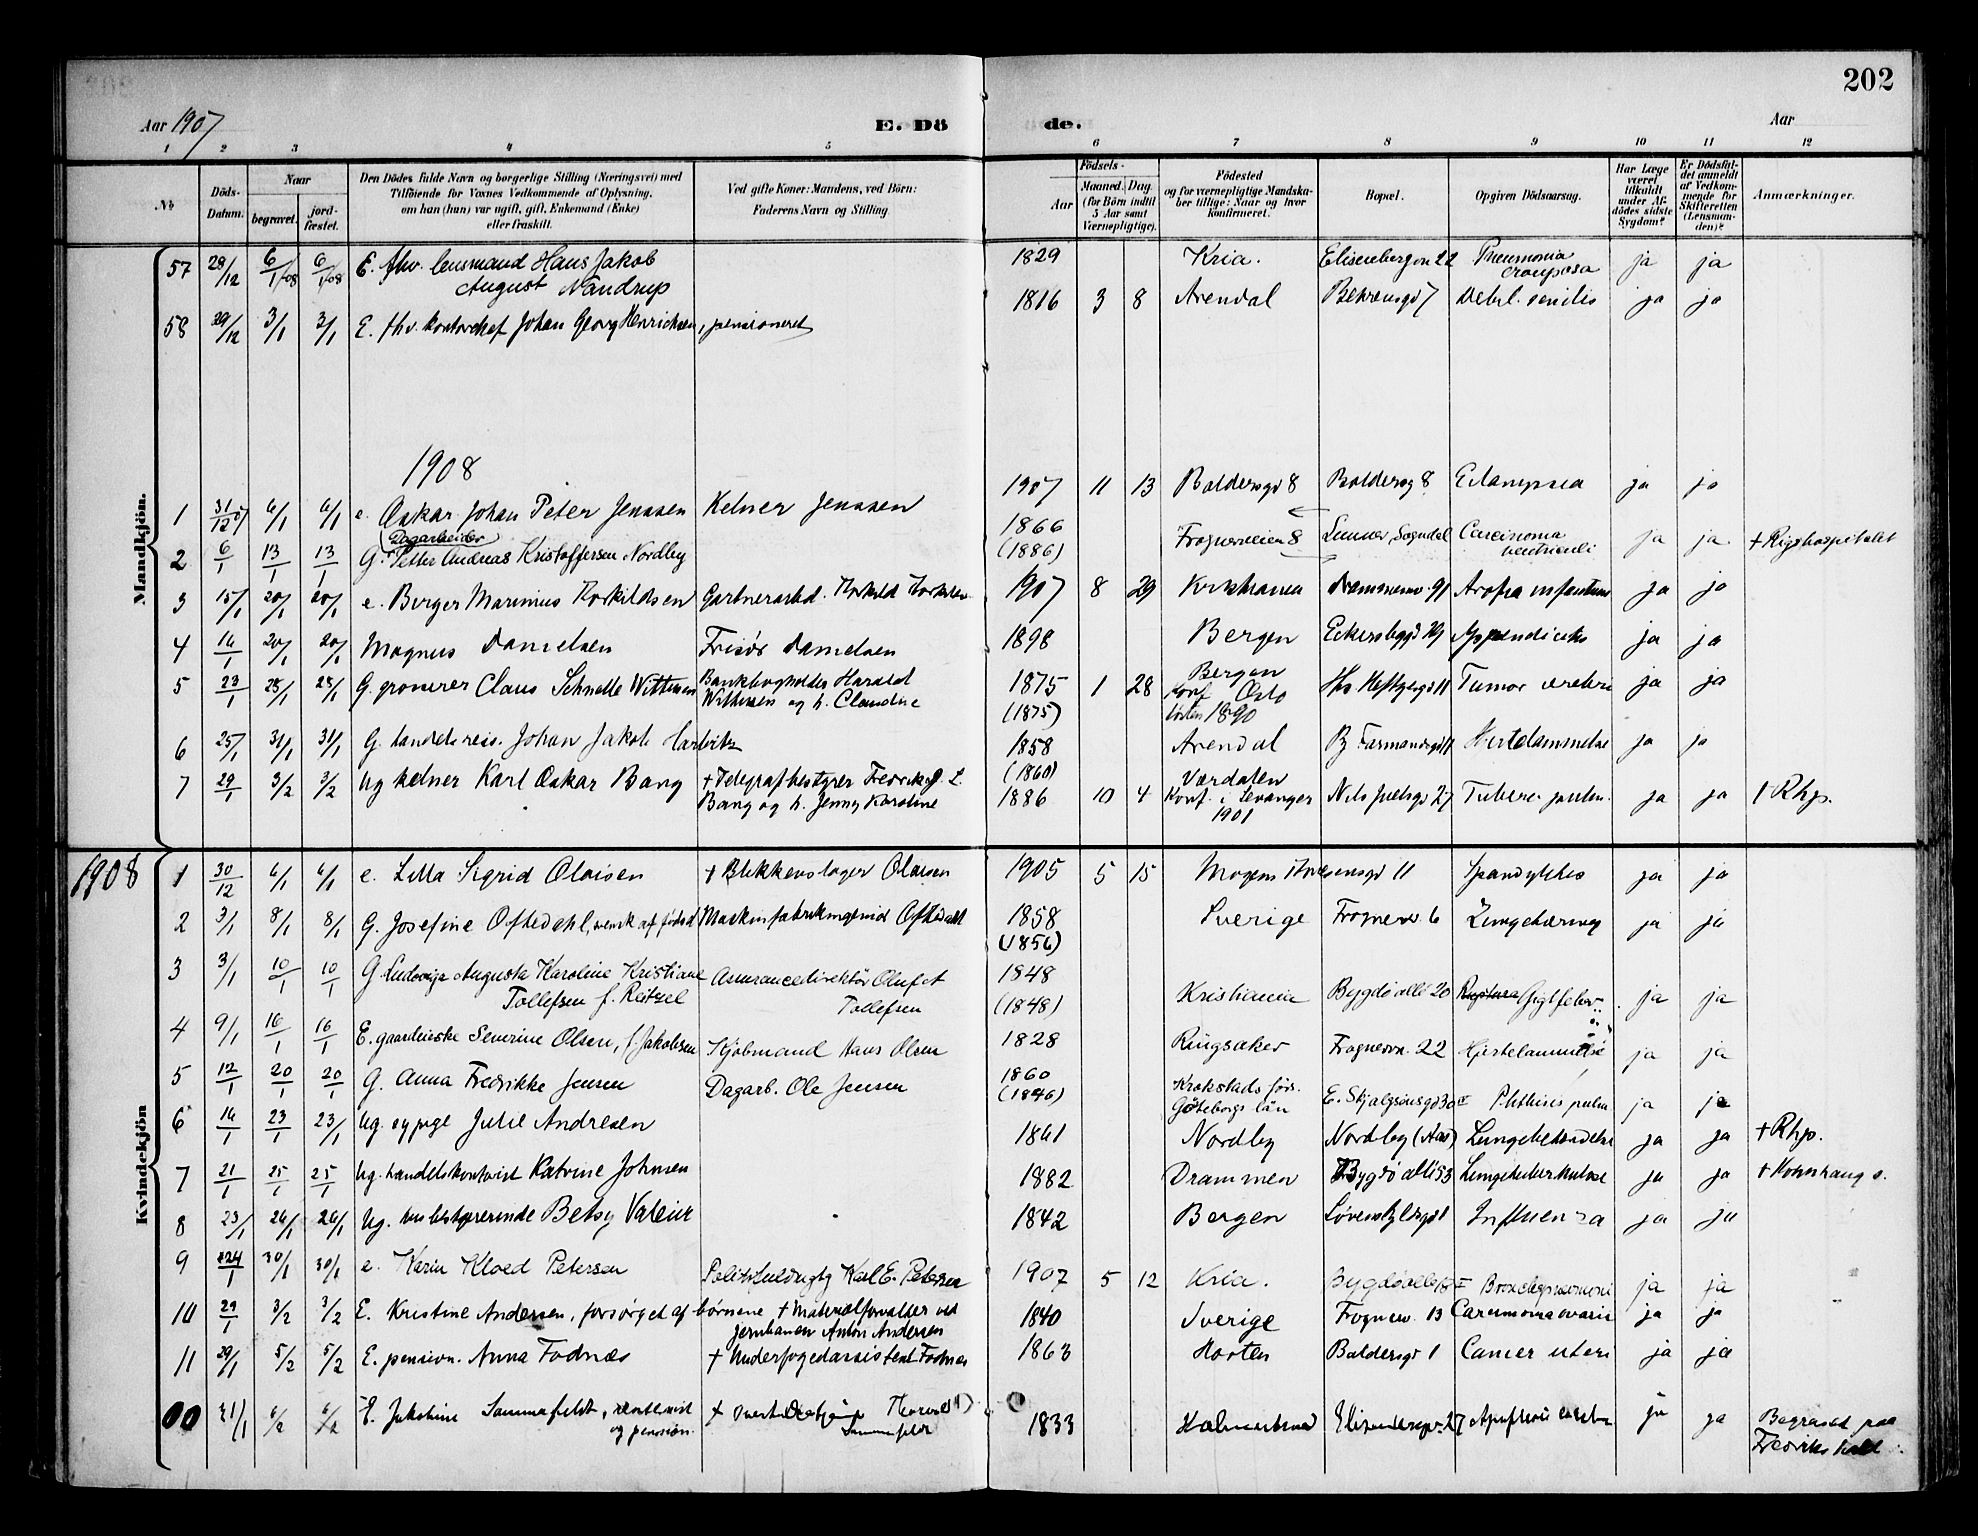 202
Aar 1907
E. Dö
de.
Aar
1 2 3 4 5 6 7 8 9 10 11 12
№
Döds-Datum.
Naar
begravet.
jord-fæstet.
Den Dödes fulde Navn og borgerlige Stilling (Næringsvei) med
Tilföiende for Voxnes Vedkommende af Oplysning,
om han (hun) var ugift, gift, Enkemand (Enke)
eller fraskilt.
Ved gifte Koner: Mandens, ved Börn:
Faderens Navn og Stilling
Födsels-
Aar
Maaned. Dag.
(for Börn indtil
5 Aar samt
Værnepligtige).
Födested
og for værnepligtige Mandska-
ber tillige: Naar og hvor
konfirmeret.
Bopæl.
Opgiven Dödsaarsag.
Har Læge
været
tilkaldt
under Af-
dödes sidste
Sygdom?
Er Dödsfal-
det anmeldt
af Vedkom-
mende for
Skifteretten
(Lensman-
den)?
Anmærkninger.
Mandkjön.
57 28/12 6/1 08 6/1 08 E. fhv. lensmand Hans Jakob August Nandrup 1829 Kria. Elisenbergvn 22 Pneumonia crouposa ja ja
58 29/12 3/1 3/1 E. fhv. kontorchef Johan Georg Henrichsen, pensioneret 1816 3 8 Arendal Behrensgd 7 Debil. senilis ja ja
1908
1 31/12 07 6/1 6/1 e. Oskar Johan Peter Jenssen Kelner Jenssen 1907 11 13 Baldersgd 8 Baldersg 8 Eclampsia ja ja
2 6/1 13/1 13/1 G. Dagarbeider Petter Andreas Kristoffersen Nordby 1866 (1886) Frognerveien 8 Lunner, Sogndal Carcinoma ventriculi ja ja + Rigshospitalet
3 15/1 20/1 20/1 e. Birger Marinius Thorkildsen Gartnerarbd. Thorkild Thorkildsen 1907 8 29 Kristiania Drammensv 91 Atrofia infantum ja ja
4 14/1 20/1 20/1 Magnus Danielsen Frisör Danielsen 1898 Bergen Eckersbergsgd 29 Appendicits ja ja
5 23/1 28/1 28/1 G. grosserer Claus Schnelle Wittusen Bankbogholder Harald Wittusen og h. Claudine 1875 (1875) 1 28 Bergen Konf. Oslo 1890 Ths. Heftyesgd 11 Tumor cerebri ja ja
6 25/1 31/1 31/1 G. handelsreis. Johan Jakob Harbitz 1858 (1860) Arendal Farmandsgd 17 Hjertelammelse ja ja
7 29/1 3/2 3/2 Ug kelner Karl Oskar Bang + Telegrafbestyrer Fredrik L. Bang og h. Jenny Karoline 1886 10 4 Værdalen Konf. i Levanger 1901 Nils Juelsgd 27 Tuberc. pulm. ja ja + Rhp.
1908
Kvindekjön
1 30/12 6/1 6/1 e. Lilla Sigrid Olaisen + Blikkenslager Olaisen 1905 5 15 Mogens Thorsensgd 11 Spondylitis ja ja
2 3/1 8/1 8/1 G. Josefine Oftedahl, svensk af födsel Maskinfabrikingeniör Oftedahl 1858 (1856) Sverige Frognerv 6 Lungetæring ja ja
3 3/1 10/1 10/1 G. Ludoviga Augusta Karoline Kristiane Tollefsen f. Reitzel Assurancedirektör Oluf A Tollefsen 1848 (1848) Kristiania Bygdö allé 20 Gigtfeber ja ja
4 9/1 16/1 16/1 E. gaardeierske Severine Olsen, f. Jakobsen Kjöbmand Hans Olsen 1828 Ringsaker Frognervn. 22 Hjertelammelse ja ja
5 12/1 20/1 20/1 G. Anna Fredrikke Jensen Dagarb. Ole Jensen 1860 (1846) Krokstads förs. Göteborgs län E. Skjalgsönsgd 30 II Phthisis pulm ja ja
6 14/1 23/1 23/1 Ug. sypige Julie Andresen 1861 Nordby Nordby (Aas) Lungebetændelse ja ja + Rhp.
7 21/1 25/1 25/1 Ug. handelskontorist Katrine Johnsen 1882 Drammen Bygdö allé 53 Lungetuberkulose ja ja + Kornhaug s.
8 23/1 26/1 26/1 Ug. husbestyrerinde Betsy Valeur 1842 Bergen Lövenskjoldsgd 1 Influenza ja ja
9 24/1 30/1 30/1 e. Karin Kloed Petersen Karl E. Petersen 1907 5 12 Kria. Bygdöallé 18 II Bronchopneumoni ja ja
10 29/1 3/2 3/2 E. Kristine Andersen, forsörget af börnene + Materialforvalter ved jernbanen Anton Andersen 1840 Sverige Frognerv. 13 Carcinoma ovarii ja ja
11 29/1 5/2 5/2 E. pension. Anna Fodnæs + Underfogedassistent Fodnæs 1863 Horten Baldersgd 1 Cancer uteri ja ja
00 31/1 6/2 6/2 E. Jakobine Sommerfeldt, og pension. + Thorvald Sommerfeldt 1833 Holmestrand 27 ja ja Begravet paa Fredrikshald